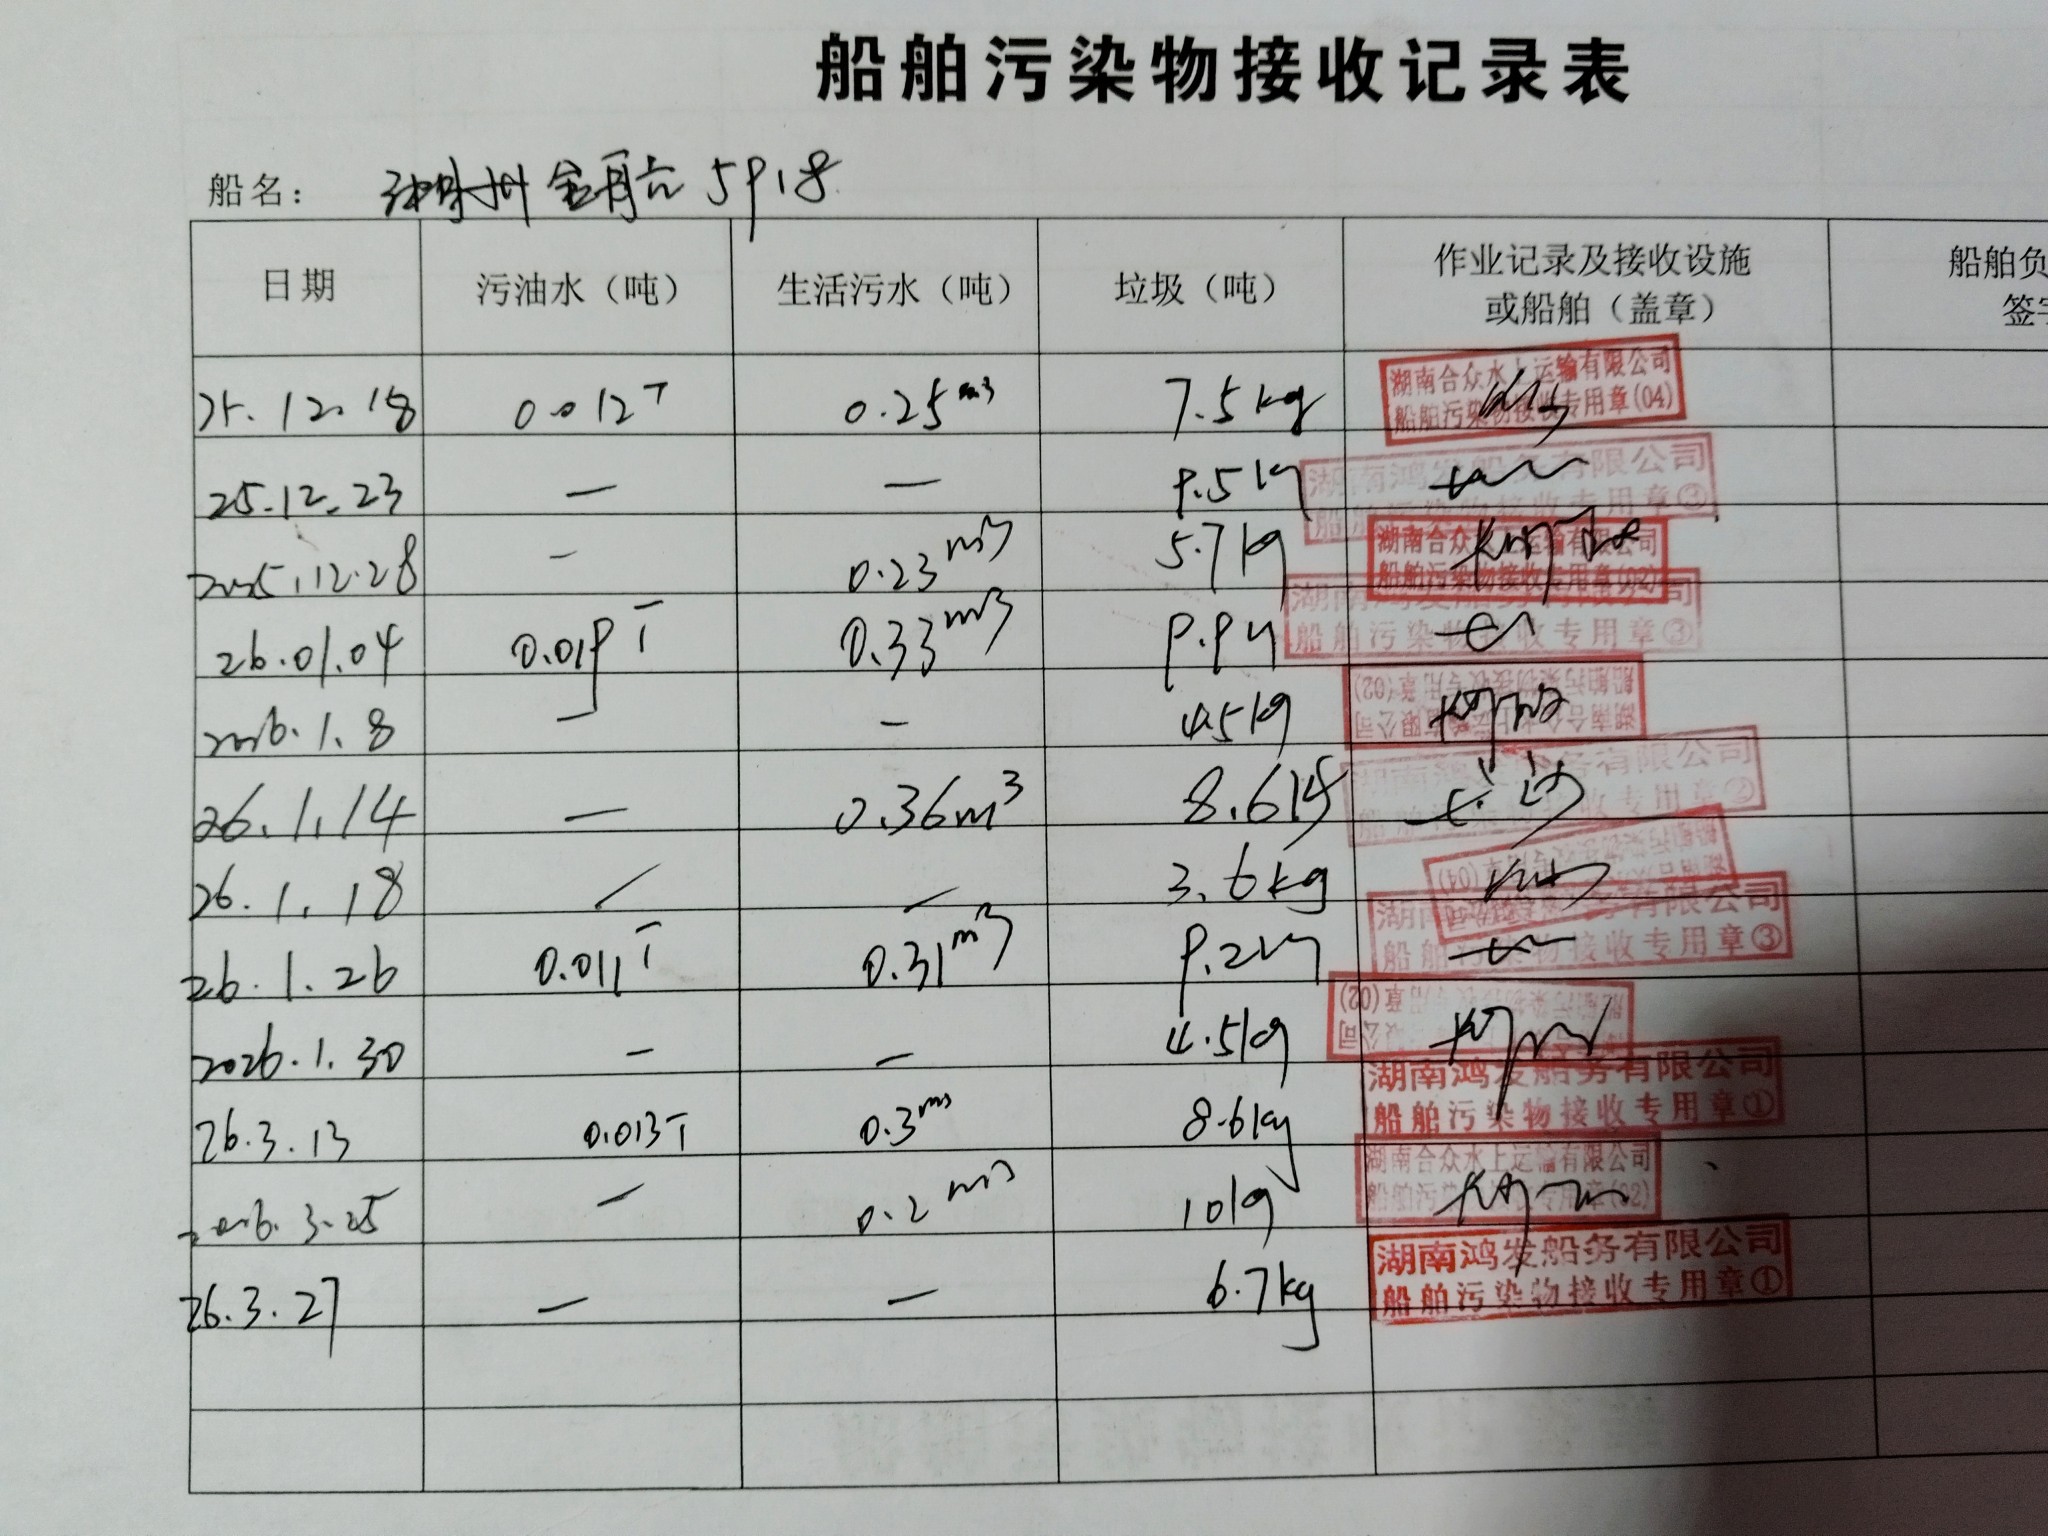 船舶污染物接收记录表
船名： 5918
日期 污油水（吨） 生活污水（吨） 垃圾（吨） 作业记录及接收设施或船舶（盖章） 船舶负 签字
25.12.18 0.012T 0.25m3 7.5kg 湖南合众水上运输有限公司 船舶污染物接收专用章(04)
25.12.23 — — 9.5kg 湖南鸿发船务有限公司 船舶污染物接收专用章③
2025.12.28 — 0.23m3 5.7kg 湖南合众水上运输有限公司 船舶污染物接收专用章(02)
26.01.04 0.019T 0.33m3 9.9kg 湖南鸿发船务有限公司 船舶污染物接收专用章③
2026.1.8 — — 4.5kg 湖南合众水上运输有限公司 船舶污染物接收专用章(02)
26.1.14 — 0.36m3 8.6kg 长沙 湖南鸿发船务有限公司 船舶污染物接收专用章②
26.1.18 / — 3.6kg 船舶污染物接收专用章(04)
26.1.26 0.011T 0.31m3 9.2kg 湖南鸿发船务有限公司 船舶污染物接收专用章③
2026.1.30 — — 4.5kg 船舶污染物接收专用章(02)
26.3.13 0.013T 0.3m3 8.6kg 湖南鸿发船务有限公司 船舶污染物接收专用章①
2026.3.25 — 0.2m3 10kg 湖南合众水上运输有限公司 船舶污染物接收专用章(02)
26.3.27 — — 6.7kg 湖南鸿发船务有限公司 船舶污染物接收专用章①